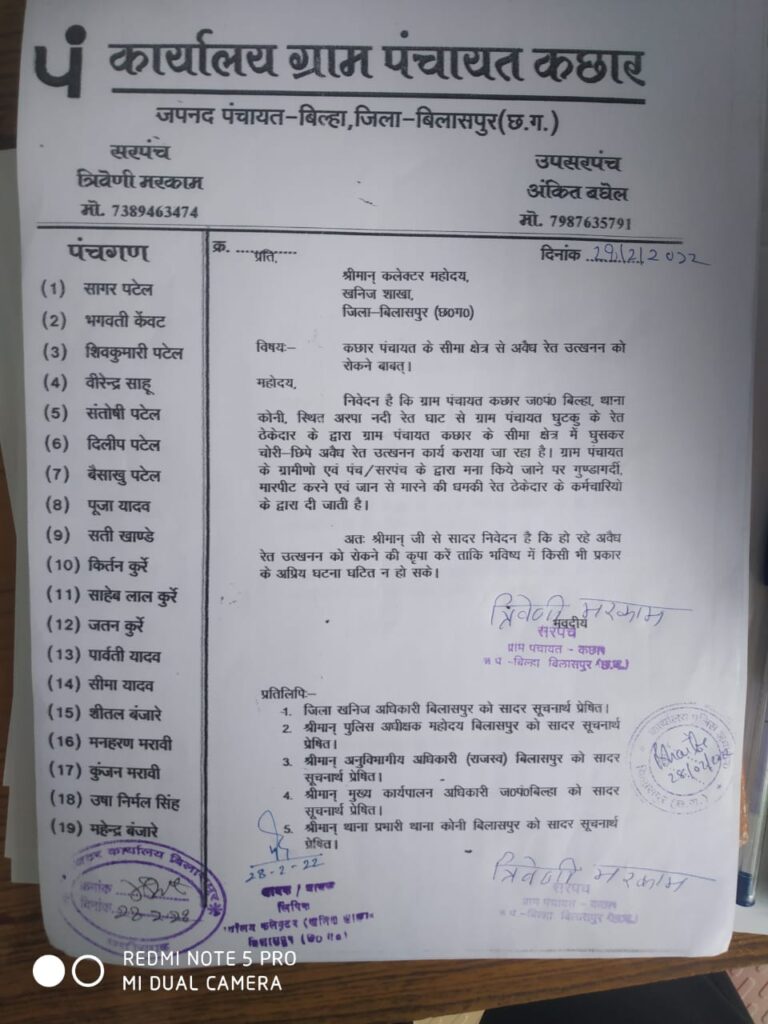 पं कार्यालय ग्राम पंचायत कछार
जपनद पंचायत-बिल्हा,जिला-बिलासपुर(छ.ग.)
सरपंच
त्रिवेणी मरकाम
मो. 7389463474
उपसरपंच
अंकित बघेल
मो. 7987635791
पंचगण
(1) सागर पटेल
(2) भगवती केंवट
(3) शिवकुमारी पटेल
(4) वीरेन्द्र साहू
(5) संतोषी पटेल
(6) दिलीप पटेल
(7) बैसाखु पटेल
(8) पूजा यादव
(9) सती खाण्डे
(10) किर्तन कुर्रे
(11) साहेब लाल कुर्रे
(12) जतन कुर्रे
(13) पार्वती यादव
(14) सीमा यादव
(15) शीतल बंजारे
(16) मनहरण मरावी
(17) कुंजन मरावी
(18) उषा निर्मल सिंह
(19) महेन्द्र बंजारे
क्र. ............... दिनांक 28/2/2022
प्रति,
श्रीमान् कलेक्टर महोदय,
खनिज शाखा,
जिला-बिलासपुर (छ0ग0)
विषयः- कछार पंचायत के सीमा क्षेत्र से अवैध रेत उत्खनन को
रोकने बाबत्।
महोदय,
निवेदन है कि ग्राम पंचायत कछार ज0पं0 बिल्हा, थाना
कोनी, स्थित अरपा नदी रेत घाट से ग्राम पंचायत घुटकु के रेत
ठेकेदार के द्वारा ग्राम पंचायत कछार के सीमा क्षेत्र में घुसकर
चोरी-छिपे अवैध रेत उत्खनन कार्य कराया जा रहा है। ग्राम पंचायत
के ग्रामीणो एवं पंच/सरपंच के द्वारा मना किये जाने पर गुण्डागर्दी,
मारपीट करने एवं जान से मारने की धमकी रेत ठेकेदार के कर्मचारियो
के द्वारा दी जाती है।
अतः श्रीमान् जी से सादर निवेदन है कि हो रहे अवैध
रेत उत्खनन को रोकने की कृपा करें ताकि भविष्य में किसी भी प्रकार
के अप्रिय घटना घटित न हो सके।
त्रिवेणी मरकाम
भवदीय
सरपंच
ग्राम पंचायत - कछार
ज पं -बिल्हा बिलासपुर (छ.ग.)
प्रतिलिपिः-
1. जिला खनिज अधिकारी बिलासपुर को सादर सूचनार्थ प्रेषित।
2. श्रीमान् पुलिस अधीक्षक महोदय बिलासपुर को सादर सूचनार्थ
प्रेषित।
3. श्रीमान् अनुविभागीय अधिकारी (राजस्व) बिलासपुर को सादर
सूचनार्थ प्रेषित।
4. श्रीमान् मुख्य कार्यपालन अधिकारी ज0पं0बिल्हा को सादर
सूचनार्थ प्रेषित।
5. श्रीमान् थाना प्रभारी थाना कोनी बिलासपुर को सादर सूचनार्थ
प्रेषित।
28-2-22
लिपिक
त्रिवेणी मरकाम
सरपंच
ग्राम पंचायत - कछार
ज पं -बिल्हा बिलासपुर (छ.ग.)
REDMI NOTE 5 PRO
MI DUAL CAMERA